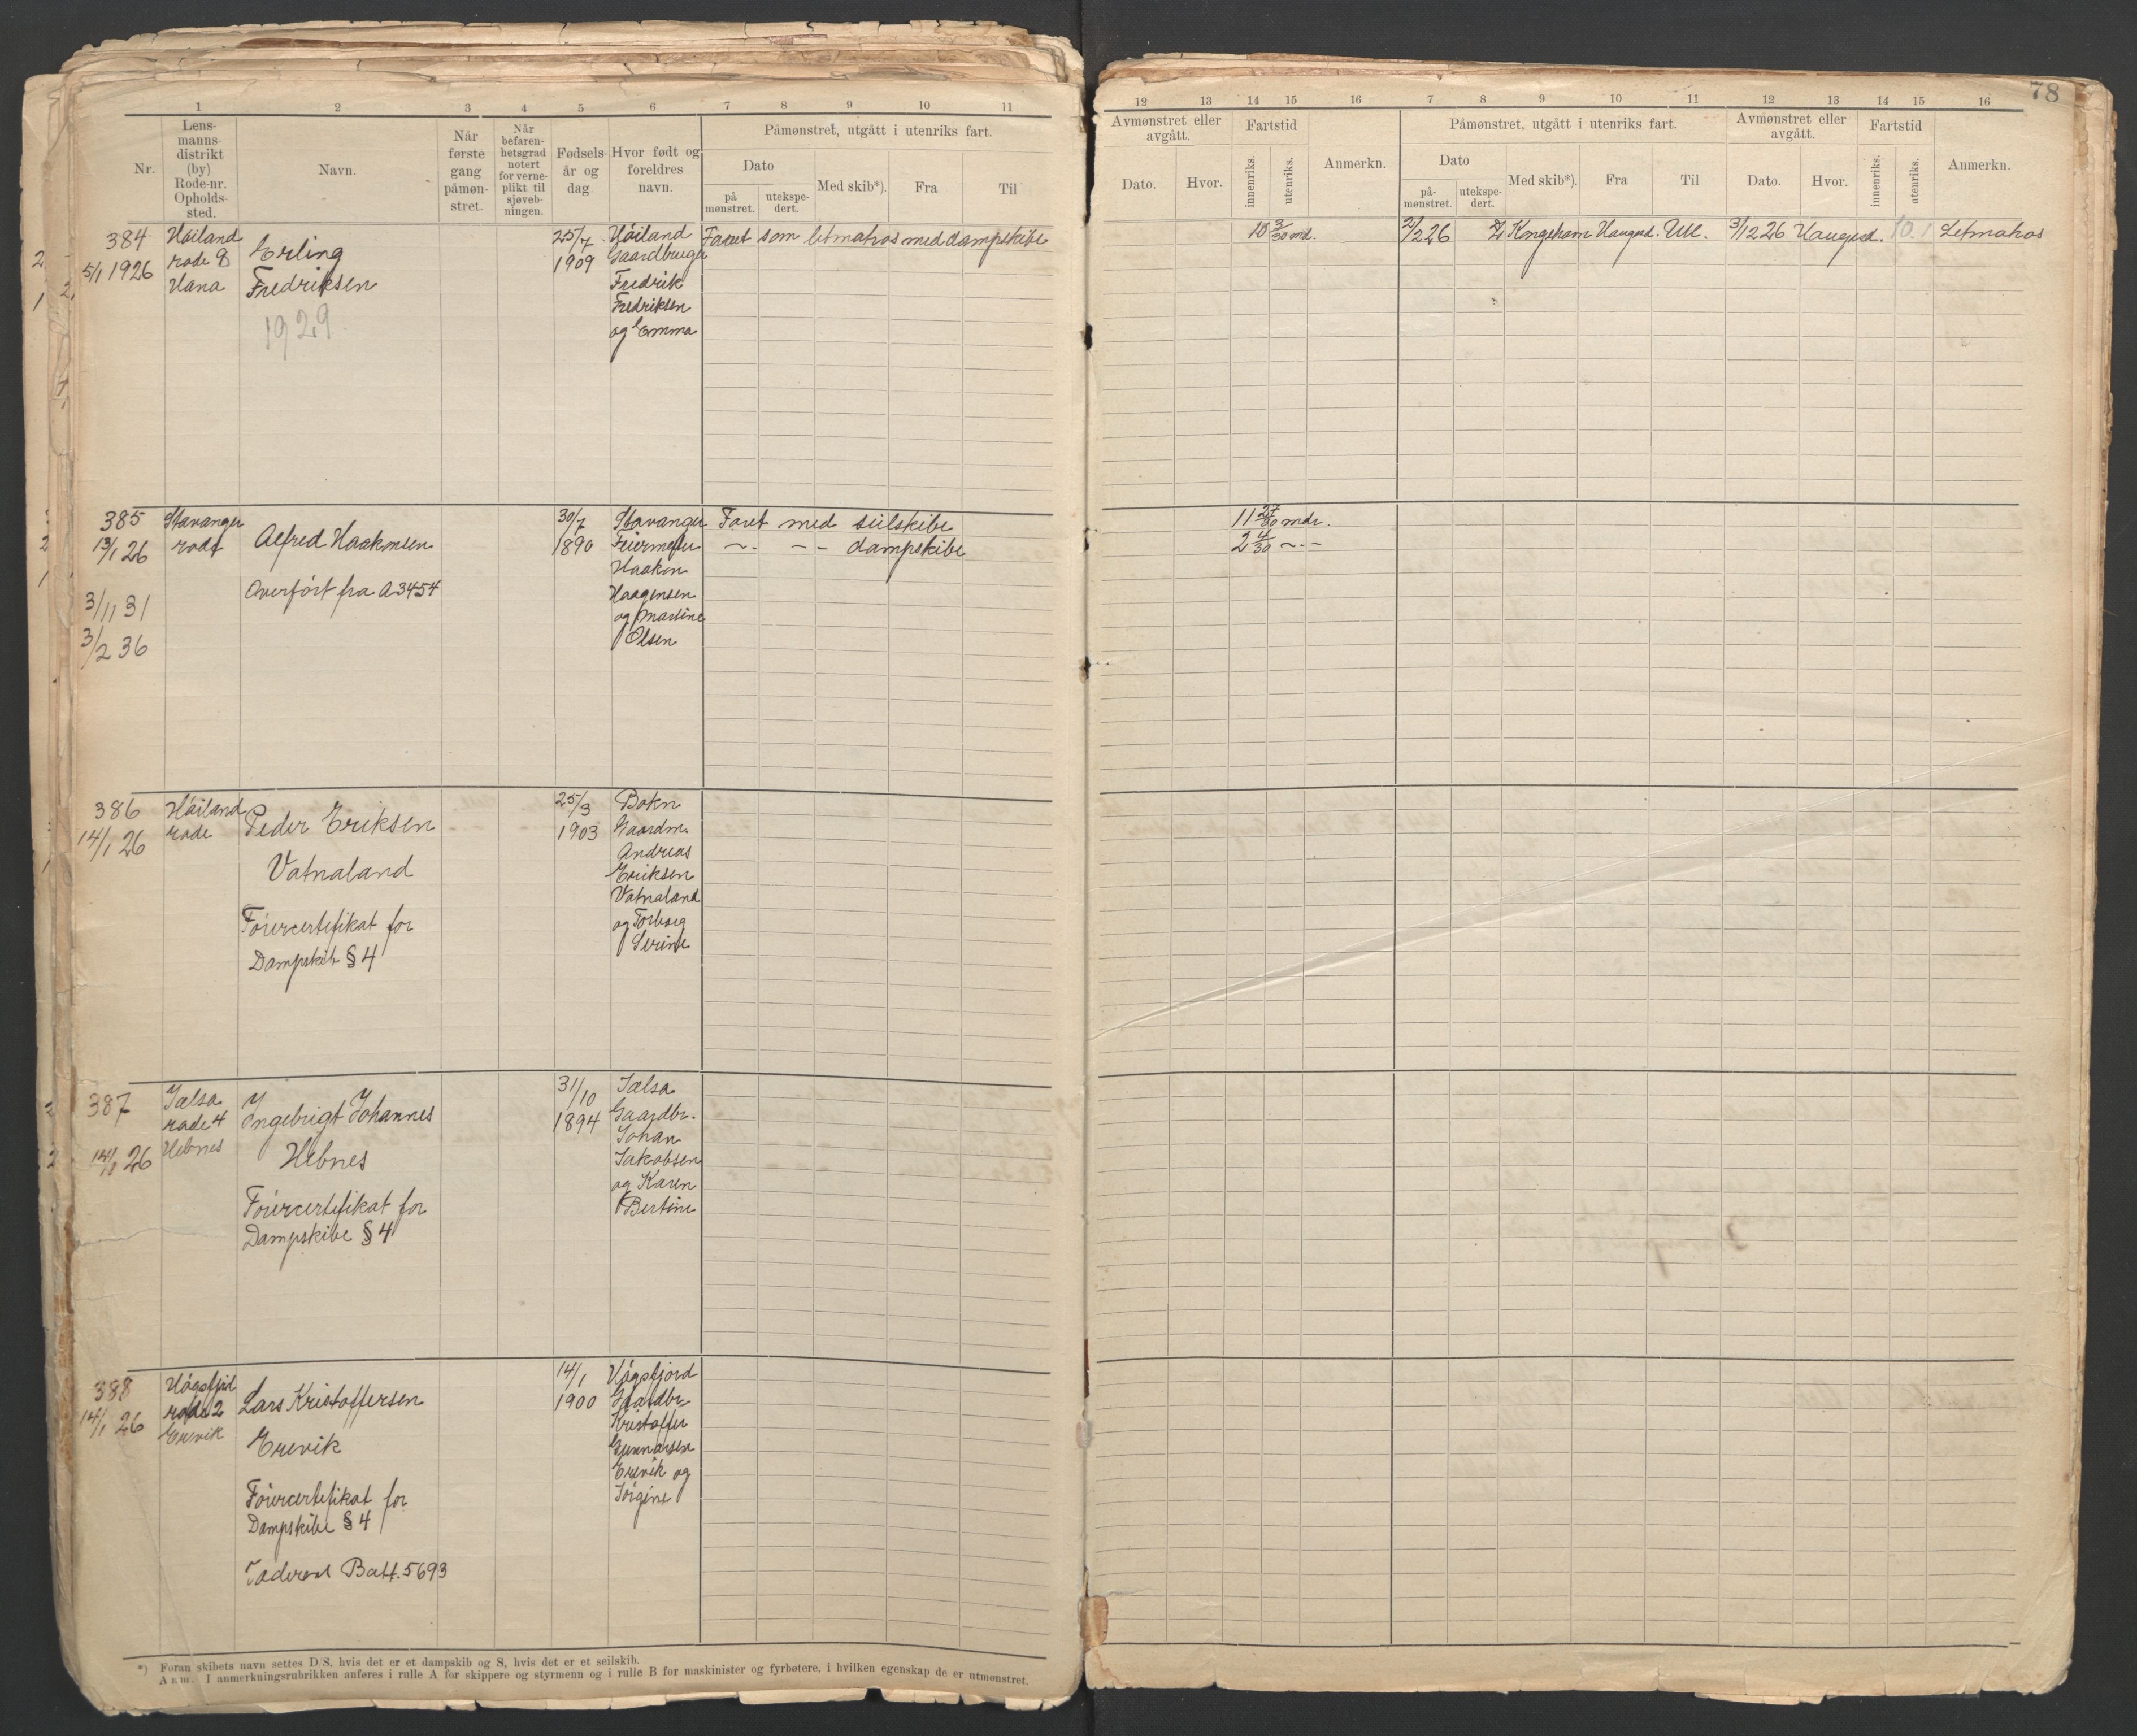 78
1 2 3 4 5 6 7 8 9 10 11
12 13 14 15 16 7 8 9 10 11 12 13 14 15 16
Nr.
Lens-
manns-
distrikt
(by)
Rode-nr.
Opholds-
sted.
Navn.
Når
første
gang
påmøn-
stret.
Når
befaren-
hetsgrad
notert
for verne-
plikt til
sjøveb-
ningen.
Fødsels-
år og
dag.
Hvor født og
foreldres
navn.
Påmønstret, utgått i utenriks fart.
Dato
på
mønstret.
utekspe-
dert.
Med skib*).
Fra
Til
Avmønstret eller
avgått.
Dato.
Hvor.
Fartstid
innenriks.
utenriks.
Anmerkn.
Påmønstret, utgått i utenriks fart.
Dato
på-
mønstret.
utekspe-
dert.
Med skib*).
Fra
Til
Avmønstret eller
avgått.
Dato.
Hvor.
Fartstid
innenriks.
utenriks.
Anmerkn.
384
5/1 1926
Høiland
rode 8
Hana
Erling
Fredriksen
1929
25/7
1909
Høiland
Gaardbruger
Fredrik
Fredriksen
og Emma
Faret som letmatros med dampskibe
10 3/30 md.
2/2 26 Kongsham Haugesd. Utl. 3/12 26 Haugesd. 10 1 Letmatros
385
13/1 26
3/11 31
3/2 36
Stavanger
rode
Alfred Haakonsen
Overført fra A3454
30/7
1890
Stavanger
Feiermester
Haakon
Haagensen
og Martine
Olsen
Faret med seilskibe
~. -- dampskibe
11 27/30 mdr.
2 4/30 ~.-
386
14/1 26
Høiland
rode
Peder Eriksen
Vatnaland
Førercertifikat for
Dampskib § 4
25/3
1903
Bokn
Gaardm.
Andreas
Eriksen
Vatnaland
og Torborg
Serine
387
14/1 26
Jælsa
rode 4
Hebnes
Ingebrigt Johannes
Hebnes
Førercertifikat for
Dampskibe § 4
31/10
1894
Jælsa
Gaardbr.
Johan
Jakobsen
og Karen
Bertine
388
14/1 26
Høgsfjord
rode 2
Erevik
Lars Kristoffersen
Erevik
Førercertifikat for
Dampskibe § 4
Jæderens Batt. 5693
14/1
1900
Høgsfjord
Gaardbr.
Kristoffer
Gunnarsen
Erevik og
Jørgine
*) Foran skibets navn settes D/S, hvis det er et dampskib og S, hvis det er et seilskib.
Anm. I anmerkningsrubrikken anføres i rulle A for skippere og styrmenn og i rulle B for maskinister og fyrbøtere, i hvilken egenskap de er utmønstret.